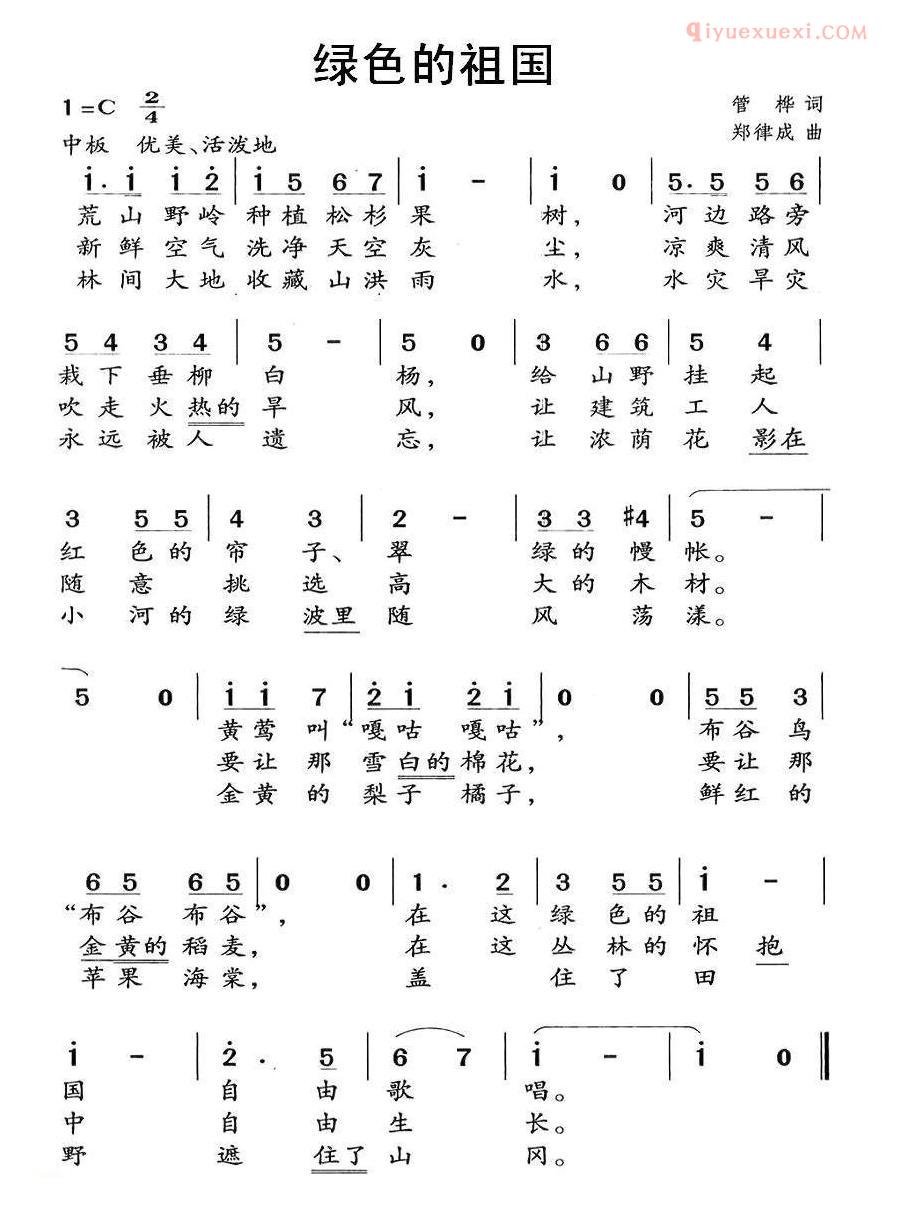 qiyuexuexi.COM
绿色的祖国
1=C 2/4
管 桦 词
中板 优美、活泼地
郑律成 曲
i· i i 2̇ | i 5 6 7 | i - | i 0 | 5· 5 5 6 |
荒 山 野 岭 种 植 松 杉 果 树, 河 边 路 旁
新 鲜 空 气 洗 净 天 空 灰 尘, 凉 爽 清 风
林 间 大 地 收 藏 山 洪 雨 水, 水 灾 旱 灾
5 4 3 4 | 5 - | 5 0 | 3 6 6 | 5 4 |
栽 下 垂 柳 白 杨, 给 山 野 挂 起
吹 走 火 热的 旱 风, 让 建 筑 工 人
永 远 被 人 遗 忘, 让 浓 荫 花 影在
3 5 5 | 4 3 | 2 - | 3 3 #4 | 5 - |
红 色 的 帘 子、 翠 绿 的 幔 帐。
随 意 挑 选 高 大 的 木 材。
小 河 的 绿 波里 随 风 荡 漾。
5 0 | i i 7 | 2̇ i 2̇ i | 0 0 | 5 5 3 |
黄 莺 叫 “嘎 咕 嘎 咕”, 布 谷 鸟
要 让 那 雪 白的 棉 花, 要 让 那
金 黄 的 梨 子 橘 子, 鲜 红 的
6 5 6 5 | 0 0 | 1 · 2 | 3 5 5 | i - |
“布 谷 布 谷”, 在 这 绿 色 的 祖
金 黄的 稻 麦, 在 这 丛 林 的 怀 抱
苹 果 海 棠, 盖 住 了 田
i - | 2̇ · 5 | 6 7 | i - | i 0 ‖
国 自 由 歌 唱。
中 自 由 生 长。
野 遮 住了 山 冈。